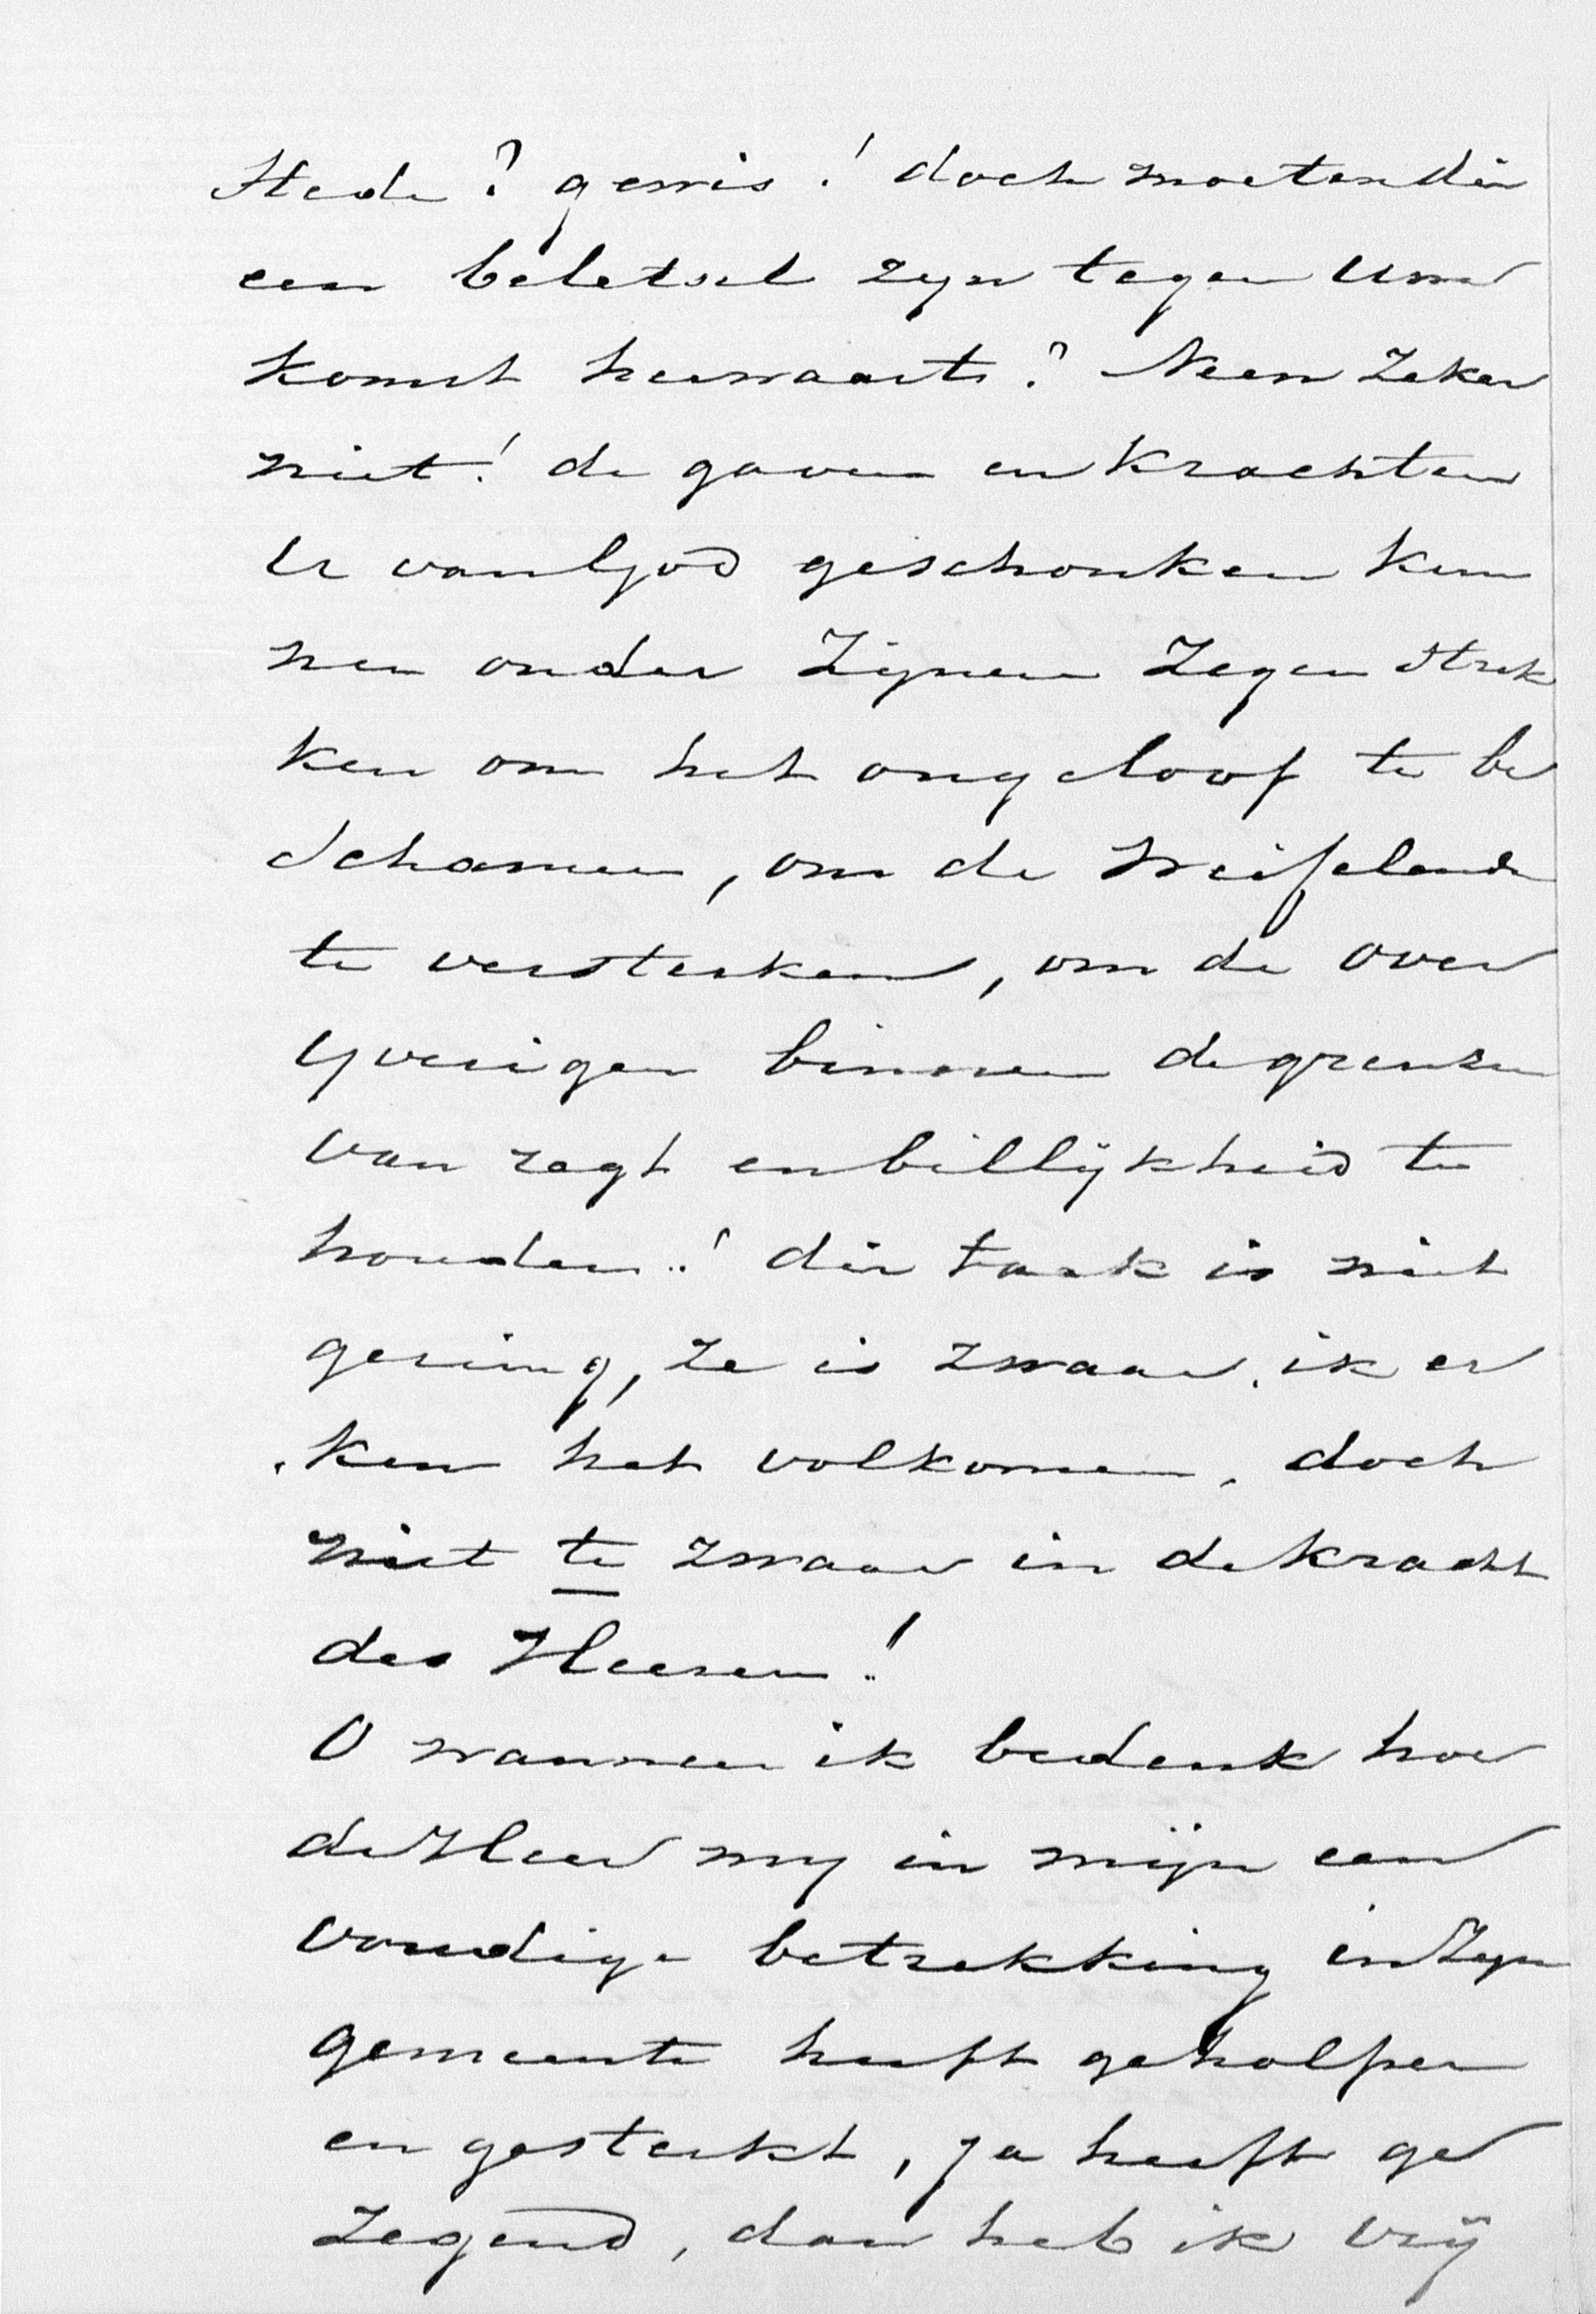 Stede? gewis! doch moeten die
een beletsel zyn tegen Uw
komst herwaarts? Neen zeker
niet! de gaven en krachten
U van God geschonken kun
nen onder Zijnen Zegen strek
ken om het ongeloof te be
schamen, om de weifelende
te versterken, om de over
yverigen binnen de grenzen
van regt en billijkheid te
houden..! die taak is niet
gering, ze is zwaar, ik er
ken het volkomen, doch
niet te zwaar in de kracht
des Heeren!
O wanneer ik bedenk hoe
de Heer my in mijn een
voudige betrekking in Zyn
gemeente heeft geholpen
en gesterkt, ja heeft ge
zegend, dan heb ik vrij